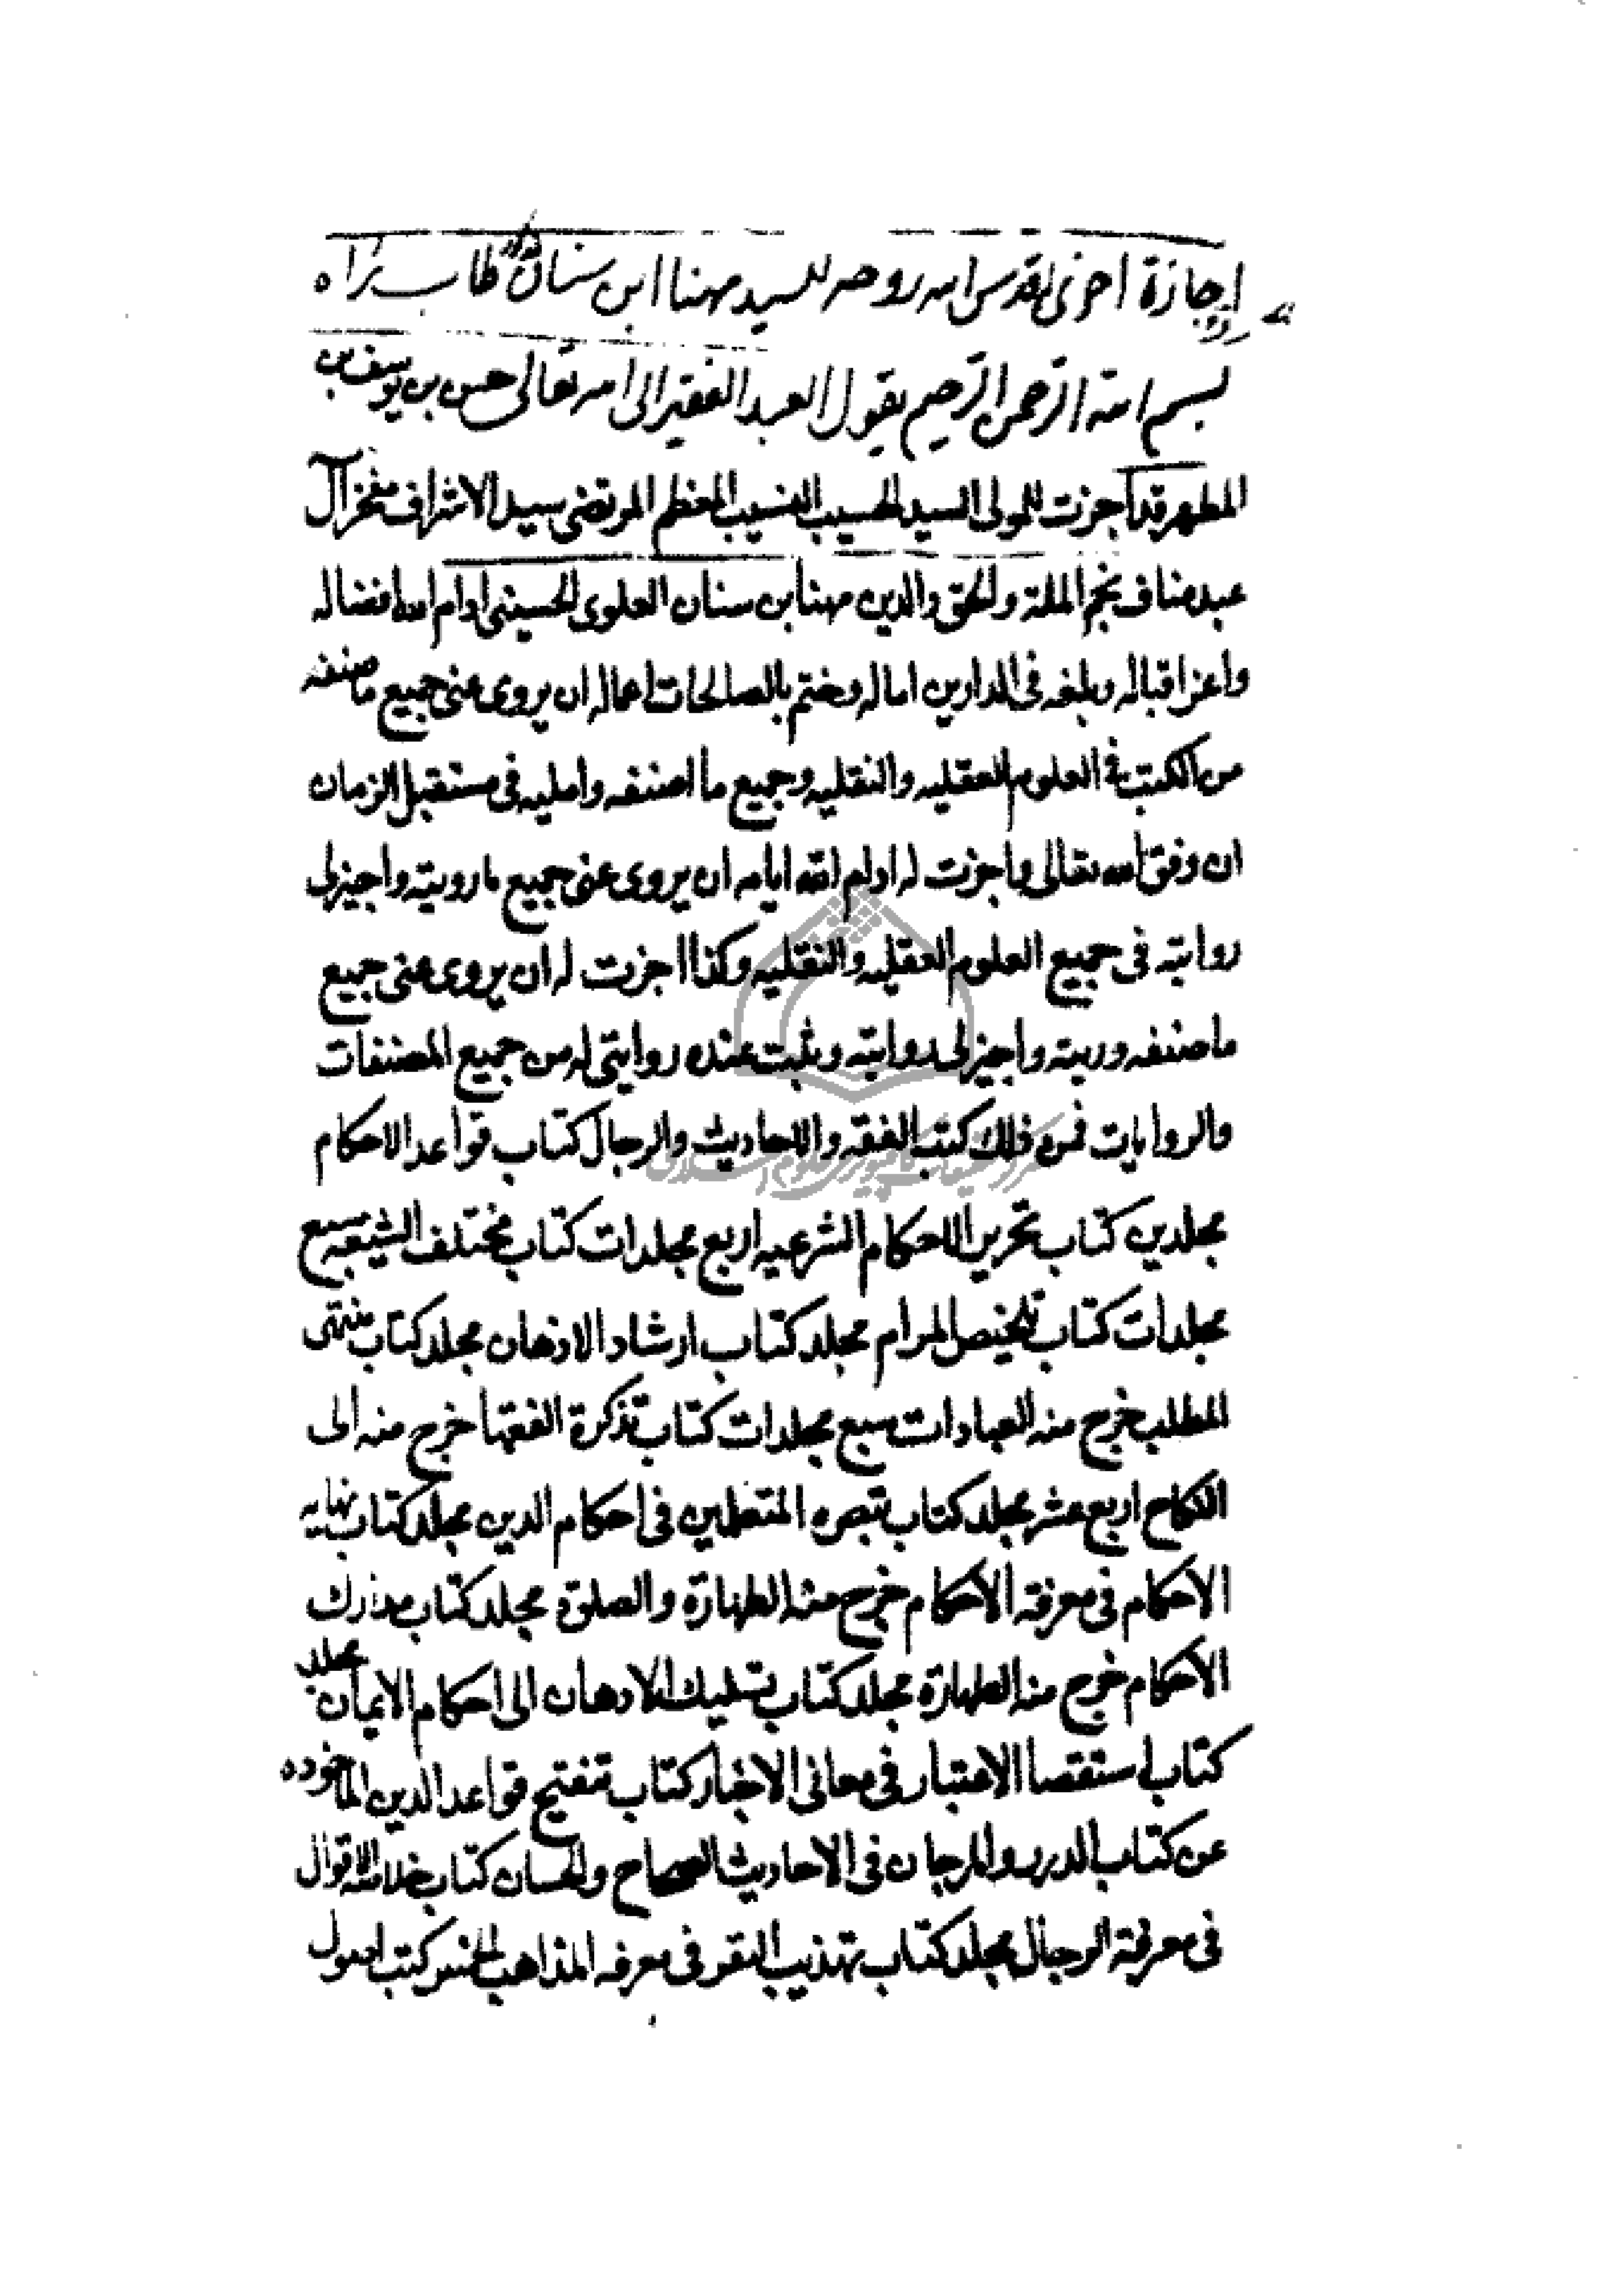 اجازة اخرى له قدس الله روحه للسيد مهنا ابن سنان طاب ثراه
بسم الله الرحمن الرحيم يقول العبد الفقير الى الله تعالى حسن بن يوسف بن
المطهر قد اجزت للمولى السيد الحسيب النسيب المعظم المرتضى سيد الاشراف مفخر آل
عبد مناف نجم الملة والحق والدين مهنا بن سنان العلوى الحسينى ادام الله افضاله
واعز اقباله وبلغه فى الدارين اماله وختم بالصالحات اعماله ان يروى عنى جميع ما صنفه
من الكتب فى العلوم العقليه والنقليه وجميع ما اصنفه وامليه فى مستقبل الزمان
ان وفق الله تعالى واجزت له ادام الله ايامه ان يروى عنى جميع ما رويته واجيز لى
روايته فى جميع العلوم العقليه والنقليه وكذا اجزت له ان يروى عنى جميع
ما صنفه ورويته واجيز لى روايته وثبت عنده روايتى له من جميع المصنفات
والروايات فمن ذلك كتب الفقه والاحاديث والرجال كتاب قواعد الاحكام
مجلدين كتاب تحرير الاحكام الشرعيه اربع مجلدات كتاب مختلف الشيعه سبع
مجلدات كتاب تلخيص المرام مجلد كتاب ارشاد الاذهان مجلد كتاب منتهى
المطلب خرج منه العبادات سبع مجلدات كتاب تذكرة الفقها خرج منه الى
النكاح اربع عشر مجلد كتاب تبصره المتعلمين فى احكام الدين مجلد كتاب نهايه
الاحكام فى معرفة الاحكام خرج منه الطهارة والصلوة مجلد كتاب مدارك
الاحكام خرج منه الطهارة مجلد كتاب تسليك الاذهان الى احكام الايمان مجلد
كتاب استقصا الاعتبار فى معانى الاخبار كتاب تنفتيح قواعد الدين الماخوده
عن كتاب الدرر والمرجان فى الاحاديث الصحاح والحسان كتاب خلاصة الاقوال
فى معرفة الرجال مجلد كتاب تهذيب النفس فى معرفه المذاهب الخمس كتب اصول